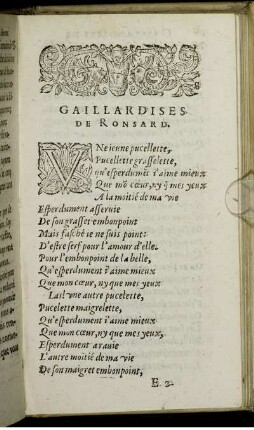 GAILLARDISES
DE RONSARD.
VNe ieune pucellette,
Pucellette grasselette,
qu'esperdumēt i'aime mieux
Que mō cœur, ny q̃ mes yeux
A la moitié de ma vie
Esperdument asseruie
De son grasset embonpoint
Mais fasché ie ne suis point:
D'estre serf pour l'amour d'elle.
Pour l'embonpoint de la belle,
Qu'esperdument i'aime mieux
Que mon cœur, ny que mes yeux
Las! vne autre pucelette,
Pucelette maigrelette,
Qu'esperdument i'aime mieux
Que mon cœur, ny que mes yeux,
Esperdument a rauie
L'autre moitié de ma vie
De son maigret embonpoint,
E. 2.